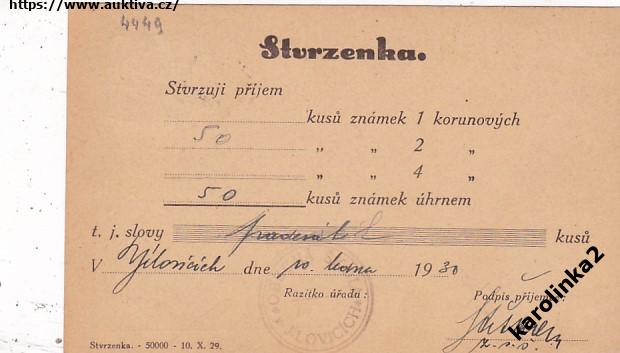 https://www.auktiva.cz/
4449
Stvrzenka.
Stvrzuji příjem
kusů známek 1 korunových
50 „ „ 2 „
„ „ 4 „
50 kusů známek úhrnem
t. j. slovy padesát kusů
V Jílovicích dne 10. ledna 1930
Razítko úřadu: Podpis příjem
Stvrzenka. - 50000 - 10. X. 29.
karolinka2